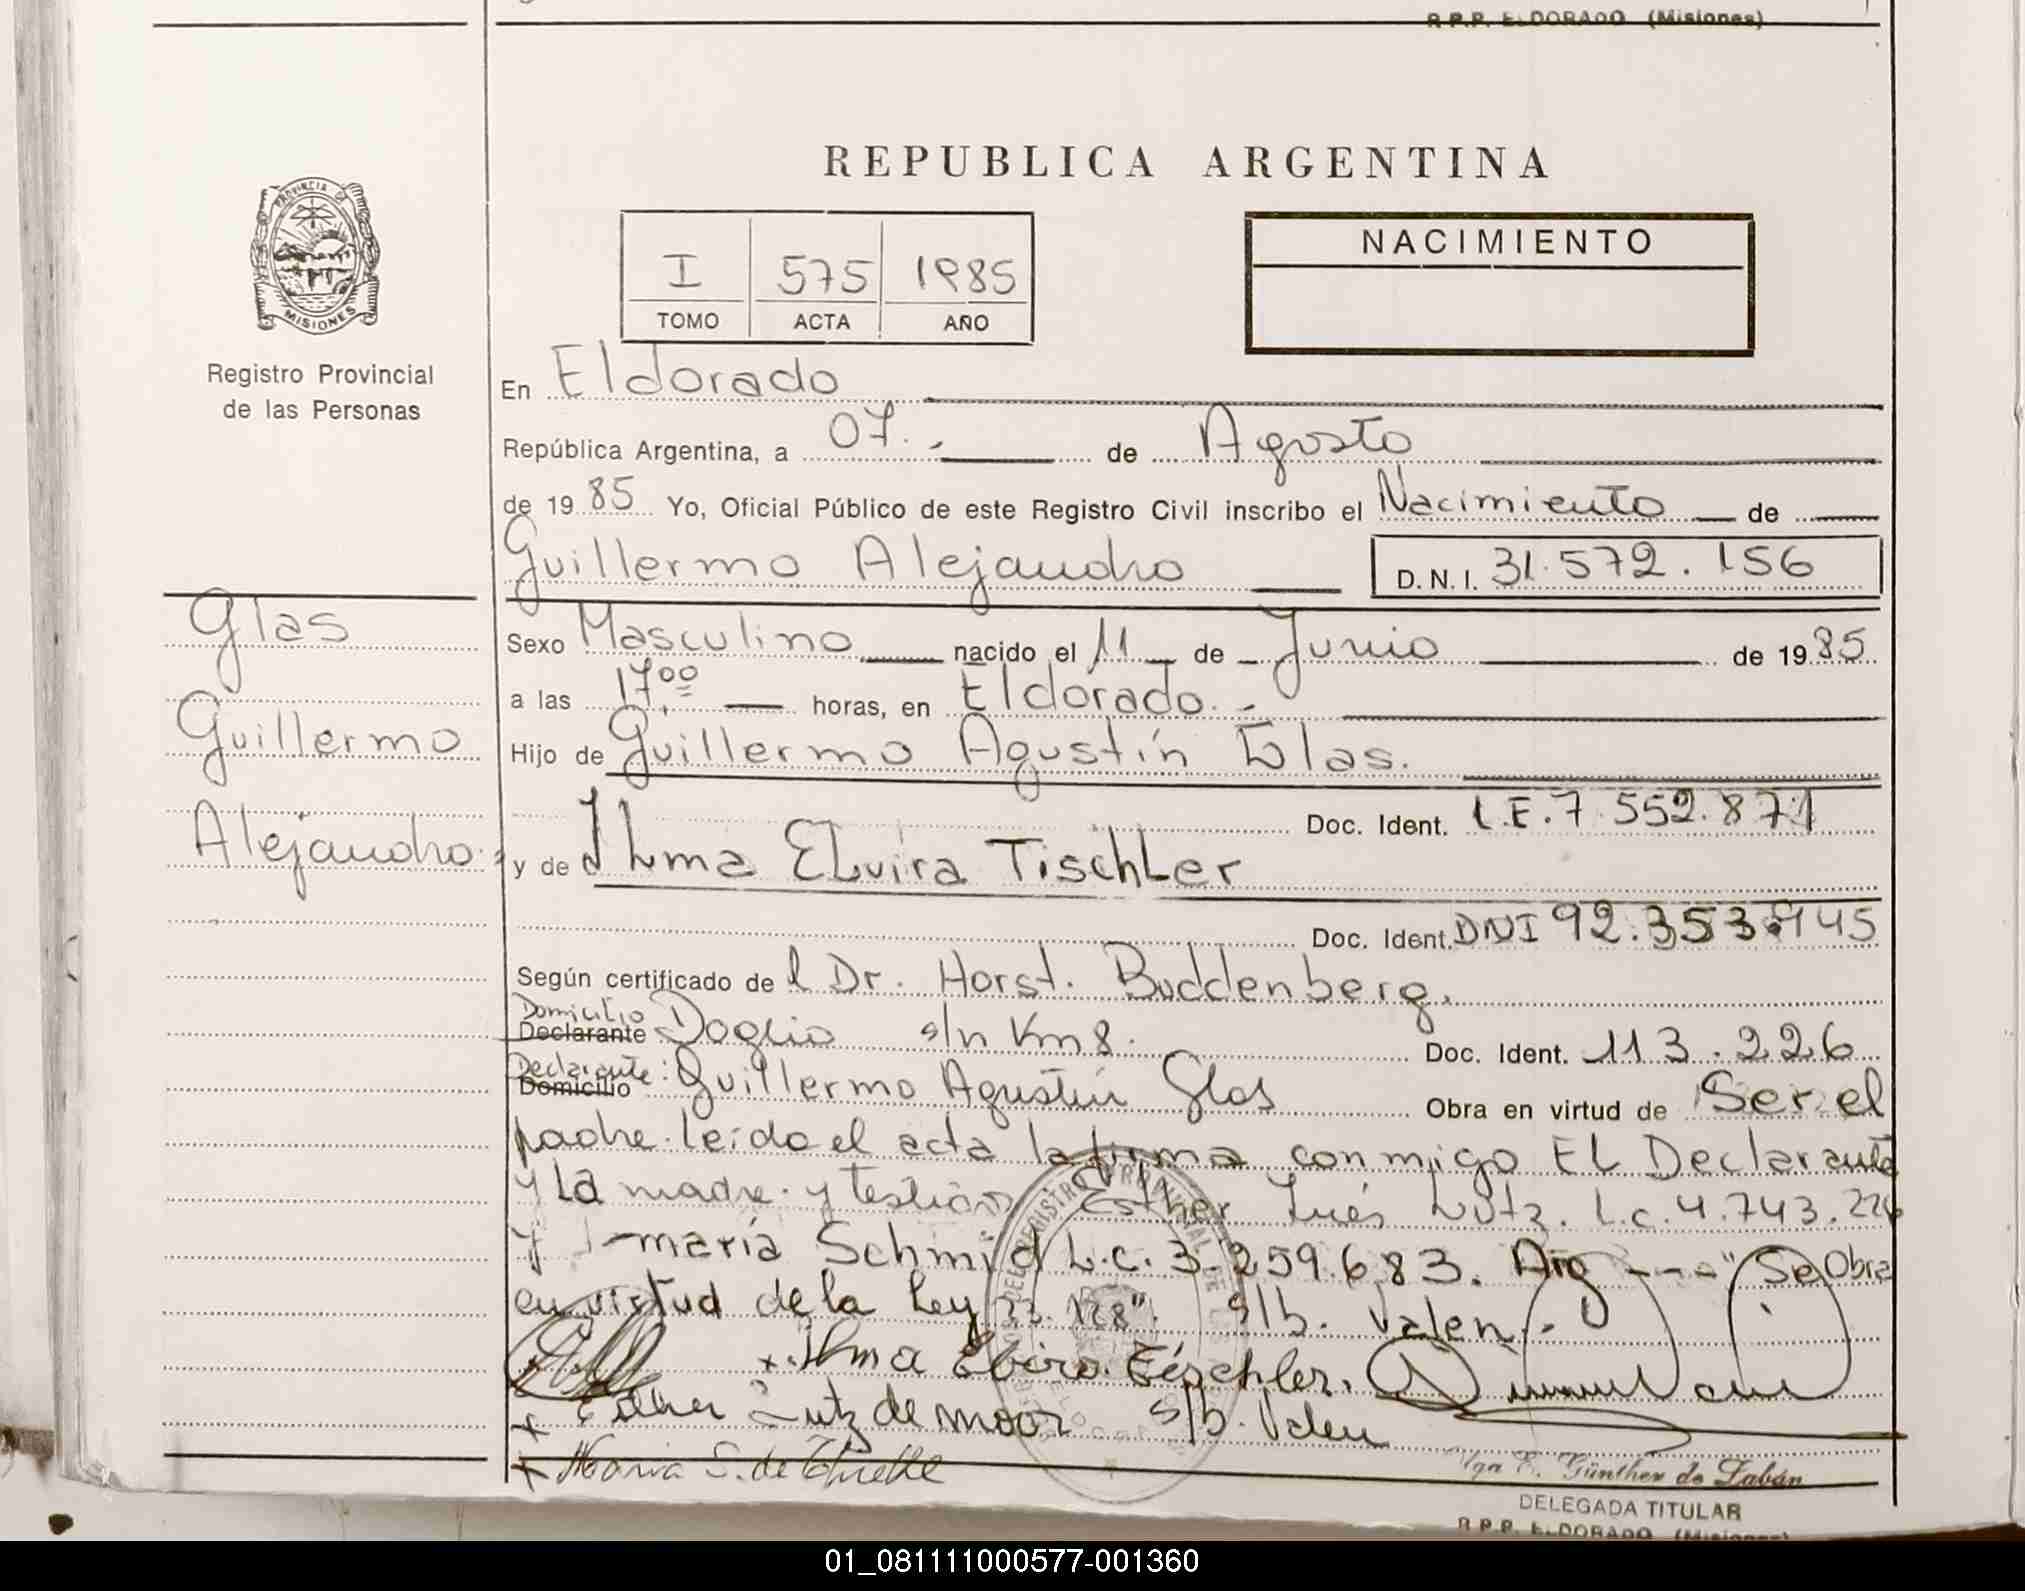 R.P.P. ELDORADO (Misiones)
REPUBLICA ARGENTINA
PROVINCIA DE
MISIONES
Registro Provincial
de las Personas
I 575 1985
TOMO ACTA AÑO
NACIMIENTO
En Eldorado
República Argentina, a 07.- de Agosto
de 1985 Yo, Oficial Público de este Registro Civil inscribo el Nacimiento de
Guillermo Alejandro D.N.I. 31.572.156
Glas
Guillermo
Alejandro.
Sexo Masculino nacido el 11 de Junio de 1985
a las 17.00 horas, en Eldorado.-
Hijo de Guillermo Agustín Glas.
Doc. Ident. L.E. 7.552.871
y de Ilma ELvira TischLer
Doc. Ident. DNI 92.353.945
Según certificado de l Dr. Horst. Buddenberg.
Domicilio
Declarante Doglio s/n Km 8. Doc. Ident. 113.226
Declarante:
Domicilio Guillermo Agustín Glas Obra en virtud de Ser el
padre. leído el acta la firma conmigo EL Declarante
y La madre. y testigos Esther Inés Lutz. L.c. 4.743.226
y maría Schmid L.c. 3.259.683. Arg ---"Se Obra
en virtud de la Ley 23.128". s/b. Valen.-
x. Ilma Elvira Tischler.
x Esther Lutz de moor s/b. Valen
x Maria S. de
Olga E. Günther de Labán
DELEGADA TITULAR
R.P.P. ELDORADO (Misiones)
01_081111000577-001360